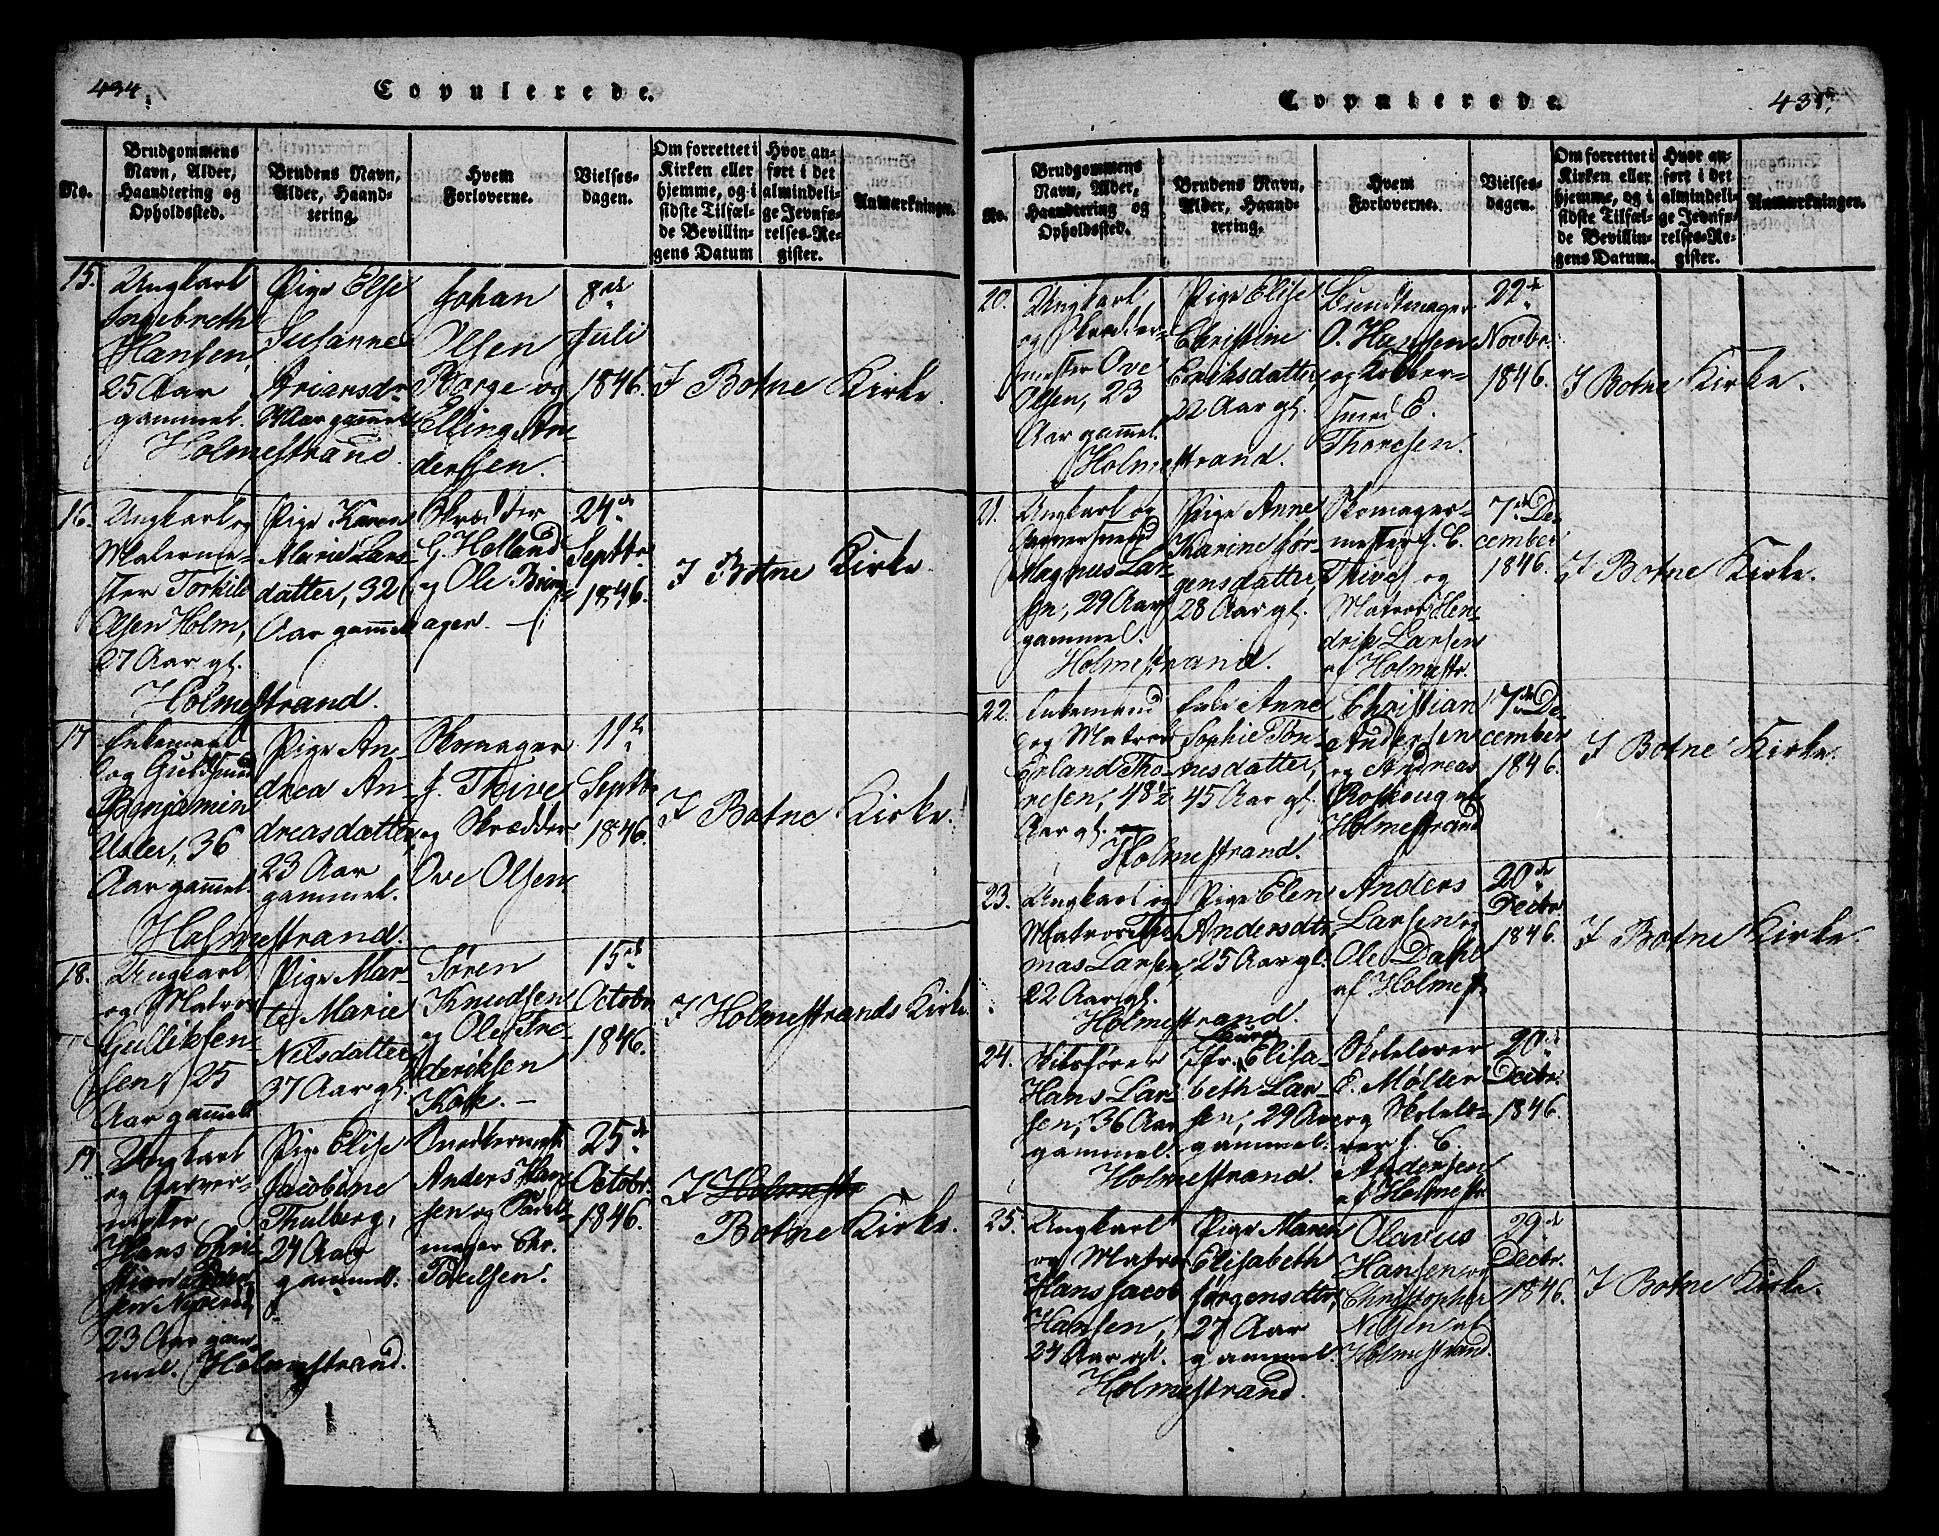 434.
Copulerede.
No.
Brudgommens
Navn, Alder,
Haandtering og
Opholdssted.
Brudens Navn,
Alder, Haand-
tering.
Hvem
Forloverne.
Vielses-
dagen.
Om forrettet i
Kirken eller
hjemme, og i
sidste Tilfæl-
de Bevillin-
gens Datum
Hvor an-
ført i det
almindeli-
ge Jevnfø-
relses-Re-
gister.
Anmærkninger.
15.
Ungkarl
Ingebreth
Hansen,
25 Aar
gammel.
Holmestrand
Pige Else
Susanne
Ariansdr
Aar gammel
Johan
Olsen
Borge og
Elling An-
dersen.
8de
Juli
1846.
I Botne Kirke.
16.
Ungkarl og
Malerme-
ster Torkild
Olsen Holm,
27 Aar gl.
Holmestrand.
Pige Karen
Marie Lars-
datter, 32
Aar gammel
Skrædder
G. Holland
og Ole
ager.
24de
Septbr
1846.
I Botne Kirke.
17
Enkemand
og Guldsmed
Benjamin
Usler, 36
Aar gammel.
Holmestrand.
Pige An-
drea An-
dreasdatter,
23 Aar
gammel.
Skomager
J. Thive
og Skrædder
Ove Olsen
11te
Septbr
1846.
I Botne Kirke.
18.
Ungkarl
og Matros
Gulliksen-
sen, 25
Aar gammel
Pige Mar-
te Marie
Nilsdatter
37 Aar gl.
Søren
Knudsen
og Ole Fre
deriksen
Kok.
15de
Octobr
1846.
I Holmestrands Kirke.
19.
Ungkarl
og Garver-
mester
Hans Chri-
stian
sen
23 Aar gam
mel. Holmestrand.
Pige Elise
Jacobine
Thulberg,
24 Aar
gammel.
Anders Han
sen og Sadel-
mager Chr.
Poulsen.
25de
Octobr.
1846.
I Holmestr
Botne Kirke.
Copulerede.
435.
No.
Brudgommens
Navn, Alder,
Haandtering og
Opholdssted.
Brudens Navn,
Alder, Haand-
tering.
Hvem
Forloverne.
Vielses-
dagen.
Om forrettet i
Kirken eller
hjemme, og i
sidste Tilfæl-
de Bevillin-
gens Datum.
Hvor an-
ført i det
almindeli-
ge Jevnfø-
relses-Re-
gister.
Anmærkninger.
20.
Ungkarl
og Skrædder-
mester Ove
Olsen, 23
Aar gammel.
Holmestrand.
Pige Elise
Christine
Eriksdatter
22 Aar gl.
Bundtmager
O. Hansen
og Kobber-
smed E.
Thoresen.
22de
Novbr.
1846.
I Botne Kirke.
21.
Ungkarl og
Garversvend
Magnus Lar-
sen, 29 Aar
gammel.
Holmestrand.
Pige Anne
Karine Jør-
gensdatter
28 Aar gl.
Skomager-
mester J. C.
Thive og
Matros Hen-
drik Larsen
af Holmestr.
7de De-
cember
1846.
I Botne Kirke.
22.
Enkemand
og Matros
Erland Tho-
resen, 48½
Aar gl.
Holmestrand.
Anne
Sophie Tøn-
nesdatter,
45 Aar gl.
Christian
Andersen
og Andreas
af
Holmestrand
7de De-
cember
1846.
I Botne Kirke.
23.
Ungkarl og
Matros Tho-
mas Larsen,
22 Aar gl.
Holmestrand.
Pige Elen
Andersdtr
25 Aar gl.
Anders
Larsen og
Ole Dahl
af Holmestr
20de
Decbr.
1846.
I Botne Kirke.
24.
Hans Lar-
sen, 36 Aar
gammel.
Holmestrand.
Jfr. Elisa-
beth Lar-
sen, 29 Aar
gammel.
Skolelærer
E. Møller
og Skolelæ-
rer J. C.
Andersen
af Holmestr
20de
Decbr.
1846.
25.
Ungkarl
og Matros
Hans Jacob
Hansen,
24 Aar gl.
Holmestrand.
Pige Maren
Elisabeth
Jørgensdtr,
27 Aar
gammel.
Olavus
Hansen og
Christopher
Nilsen af
Holmestrand.
29de
Decbr.
1846.
I Botne Kirke.